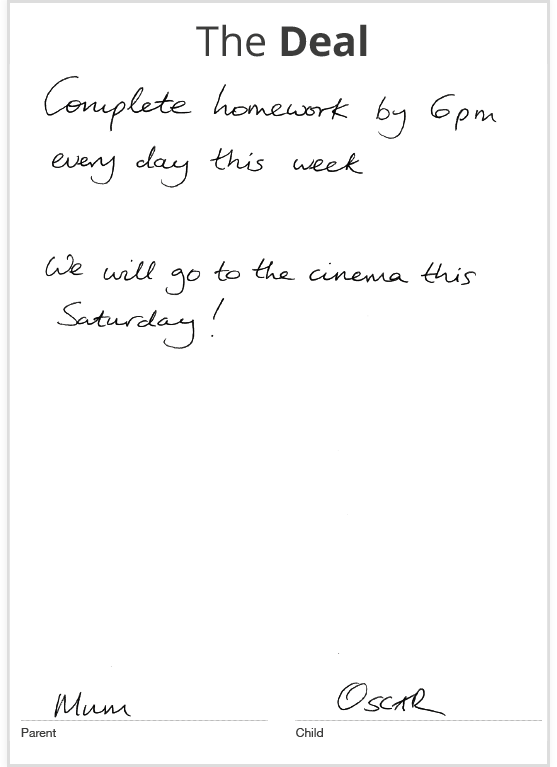 The Deal
Complete homework by 6pm
every day this week
We will go to the cinema this
Saturday!
Mum
OSCAR
Parent
Child